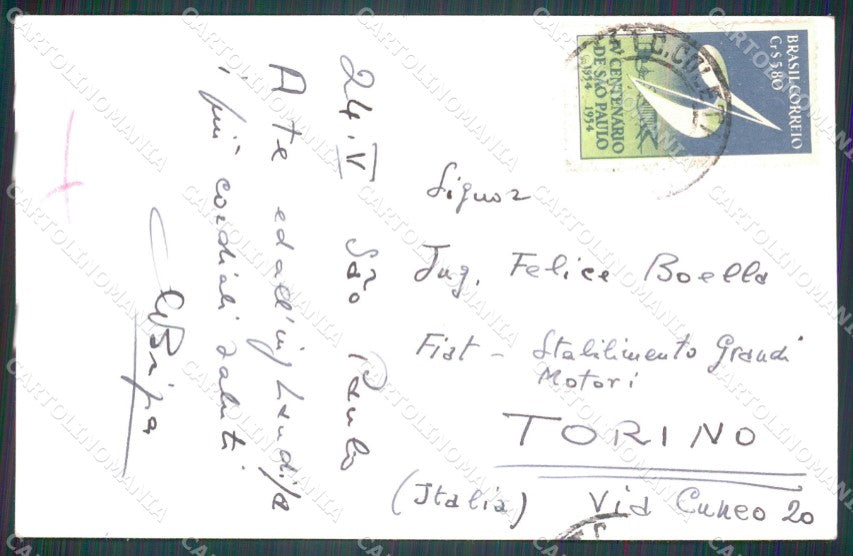 24.V São Paulo
A te ed all'ing Landi/a
i più cordiali saluti
BRASIL CORREIO
Cr$ 5,80
IV CENTENARIO
DE SÃO PAULO
1554 1954
Signor
Ing. Felice Boella
Fiat - Stabilimento Grandi
Motori
TORINO
(Italia) Via Cuneo 20
CARTOLINOMANIA